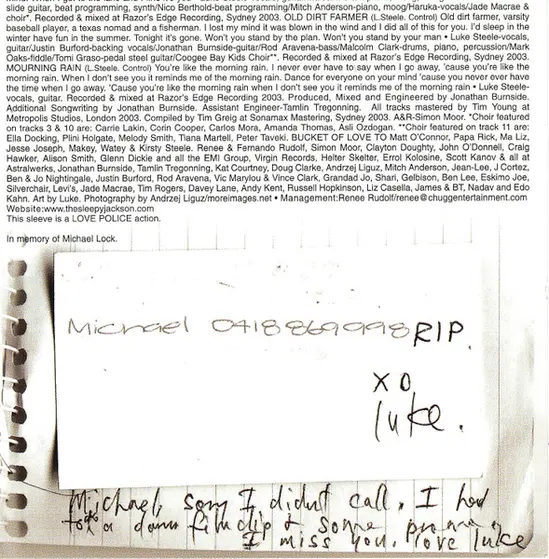 slide guitar, beat programming, synth/Nico Berthold-beat programming/Mitch Anderson-piano, moog/Haruka-vocals/Jade Macrae &
choir*. Recorded & mixed at Razor's Edge Recording, Sydney 2003. OLD DIRT FARMER (L.Steele. Control) Old dirt farmer, varsity
baseball player, a texas nomad and a fisherman. I lost my mind it was blown in the wind and I did all of this for you. I'd sleep in the
winter have fun in the summer. Tonight it's gone. Won't you stand by the plan. Won't you stand by your man • Luke Steele-vocals,
guitar/Justin Burford-backing vocals/Jonathan Burnside-guitar/Rod Aravena-bass/Malcolm Clark-drums, piano, percussion/Mark
Oaks-fiddle/Tomi Graso-pedal steel guitar/Coogee Bay Kids Choir**. Recorded & mixed at Razor's Edge Recording, Sydney 2003.
MOURNING RAIN (L.Steele. Control) You're like the morning rain. I never ever have to say when I go away, 'cause you're like the
morning rain. When I don't see you it reminds me of the morning rain. Dance for everyone on your mind 'cause you never ever have
the time when I go away, 'Cause you're like the morning rain when I don't see you it reminds me of the morning rain • Luke Steele-
vocals, guitar. Recorded & mixed at Razor's Edge Recording 2003. Produced, Mixed and Engineered by Jonathan Burnside.
Additional Songwriting by Jonathan Burnside. Assistant Engineer-Tamlin Tregonning. All tracks mastered by Tim Young at
Metropolis Studios, London 2003. Compiled by Tim Greig at Sonamax Mastering, Sydney 2003. A&R-Simon Moor. *Choir featured
on tracks 3 & 10 are: Carrie Lakin, Corin Cooper, Carlos Mora, Amanda Thomas, Asli Ozdogan. **Choir featured on track 11 are:
Ella Docking, Plini Holgate, Melody Smith, Tiana Martell, Peter Taveki. BUCKET OF LOVE TO Matt O'Connor, Papa Rick, Ma Liz,
Jesse Joseph, Makey, Watey & Kirsty Steele. Renee & Fernando Rudolf, Simon Moor, Clayton Doughty, John O'Donnell, Craig
Hawker, Alison Smith, Glenn Dickie and all the EMI Group, Virgin Records, Helter Skelter, Errol Kolosine, Scott Kanov & all at
Astralwerks, Jonathan Burnside, Tamlin Tregonning, Kat Courtney, Doug Clarke, Andrzej Liguz, Mitch Anderson, Jean-Lee, J Cortez,
Ben & Jo Nightingale, Justin Burford, Rod Aravena, Vic Marylou & Vince Clark, Grandad Jo, Shari, Gelbison, Ben Lee, Eskimo Joe,
Silverchair, Levi's, Jade Macrae, Tim Rogers, Davey Lane, Andy Kent, Russell Hopkinson, Liz Casella, James & BT, Nadav and Edo
Kahn. Art by Luke. Photography by Andrzej Liguz/moreimages.net • Management:Renee Rudolf/renee@chuggentertainment.com
Website:www.thesleepyjackson.com
This sleeve is a LOVE POLICE action.
In memory of Michael Lock.
Michael 0418869998 RIP.
XO
luke.
Michael, sorry I didnt call. I had
to do a damn filmclip & some
I miss you. love luke